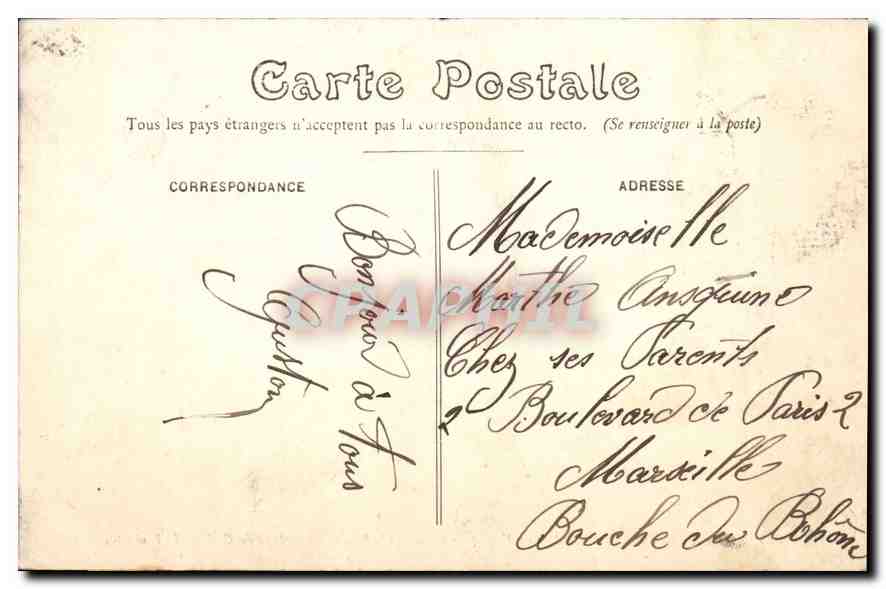 Carte Postale
Tous les pays étrangers n'acceptent pas la correspondance au recto. (Se renseigner à la poste)
CORRESPONDANCE
Bonjour à tous
Guston
ADRESSE
Mademoiselle
Marthe Ansquine
Chez ses Parents
2 Boulevard de Paris 2
Marseille
Bouche du Rhône
CPAPHIL